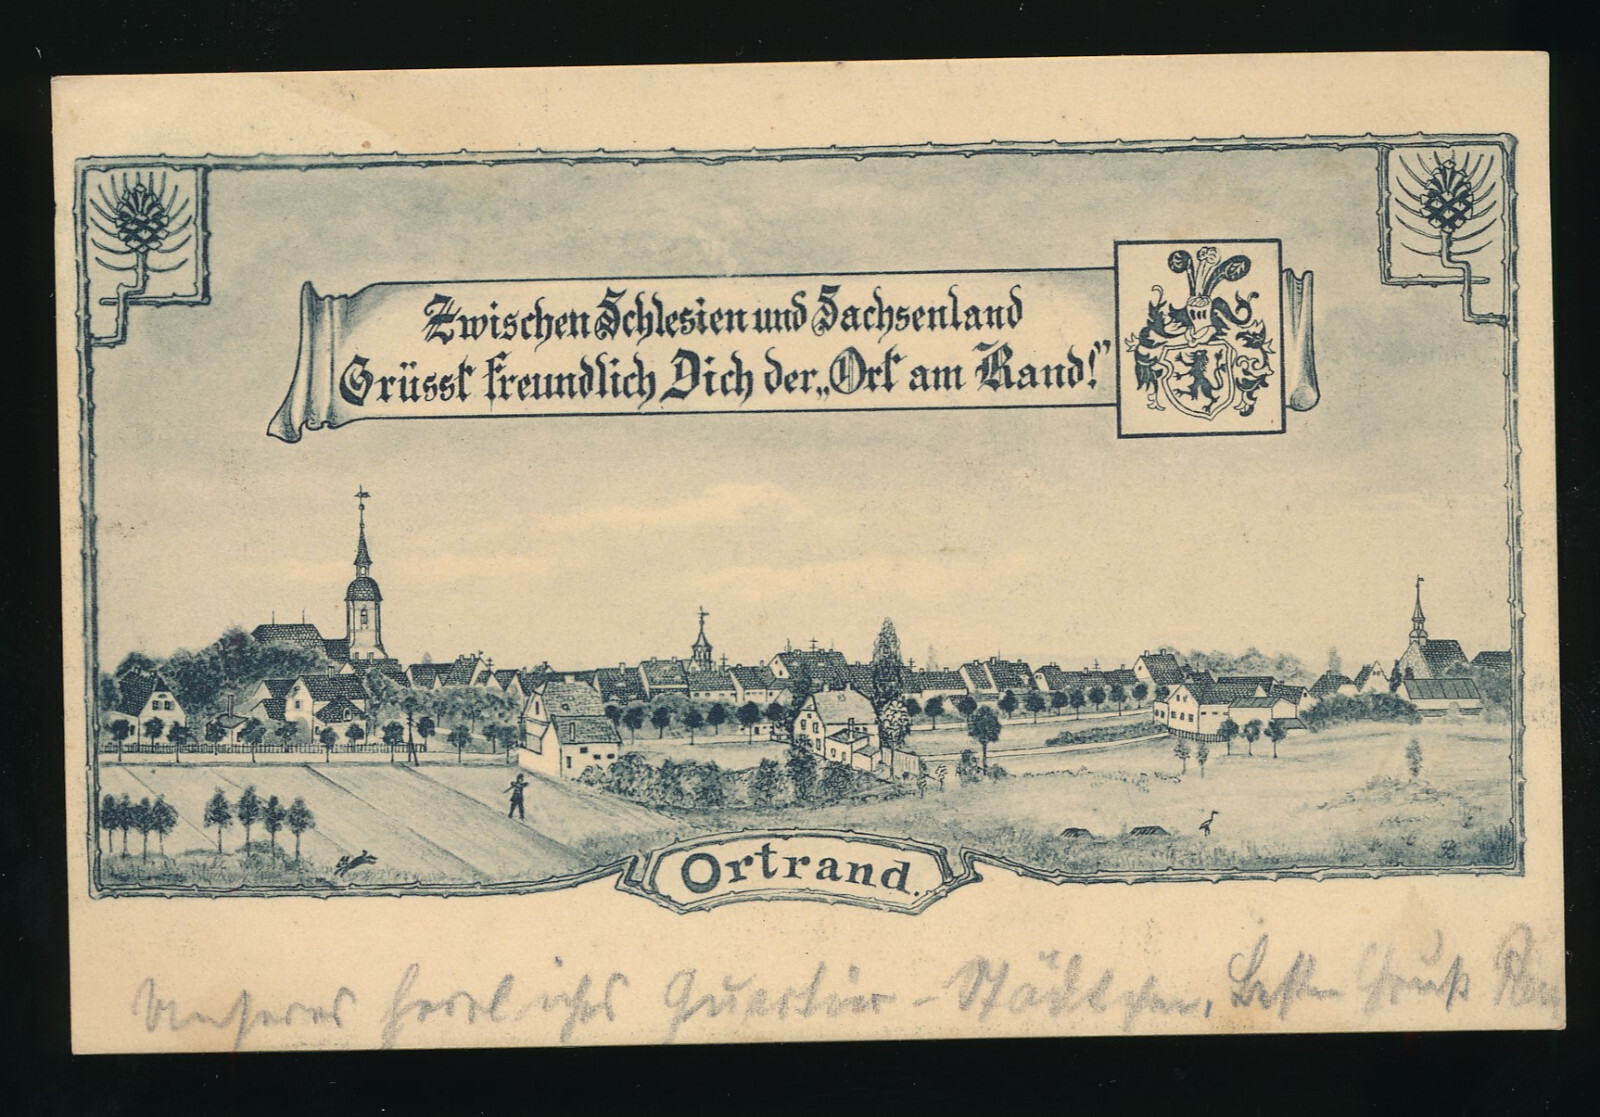 Zwischen Schlesien und Sachsenland
Grüsst freundlich Dich der „Ort am Rand!"
Ortrand.
Unseres herrliches Quartier-Städtchen. Besten Gruß